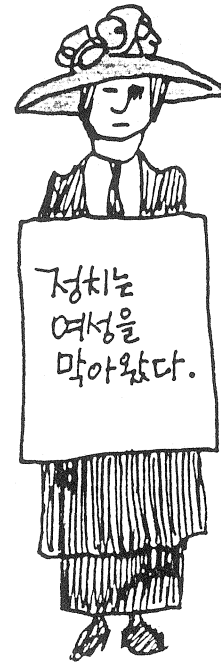 정치는
여성을
막아왔다.